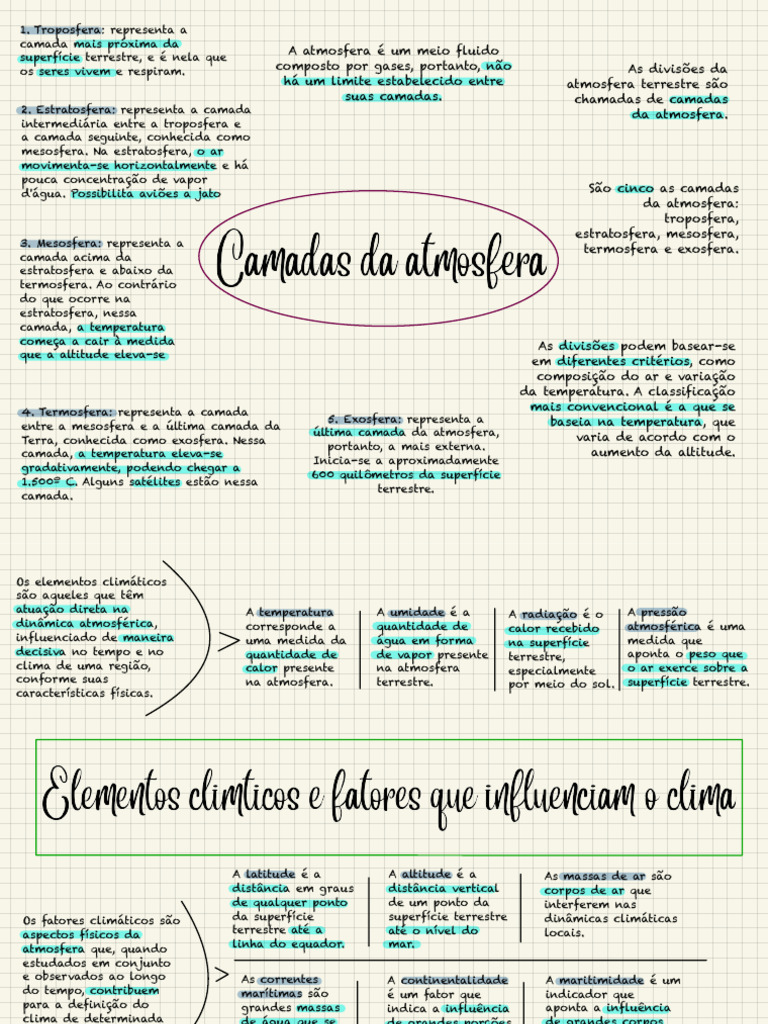 1. Troposfera: representa a
camada mais próxima da
superfície terrestre, e é nela que
os seres vivem e respiram.
2. Estratosfera: representa a camada
intermediária entre a troposfera e
a camada seguinte, conhecida como
mesosfera. Na estratosfera, o ar
movimenta-se horizontalmente e há
pouca concentração de vapor
d'água. Possibilita aviões a jato
3. Mesosfera: representa a
camada acima da
estratosfera e abaixo da
termosfera. Ao contrário
do que ocorre na
estratosfera, nessa
camada, a temperatura
começa a cair à medida
que a altitude eleva-se
4. Termosfera: representa a camada
entre a mesosfera e a última camada da
Terra, conhecida como exosfera. Nessa
camada, a temperatura eleva-se
gradativamente, podendo chegar a
1.500º C. Alguns satélites estão nessa
camada.
A atmosfera é um meio fluido
composto por gases, portanto, não
há um limite estabelecido entre
suas camadas.
Camadas da atmosfera
5. Exosfera: representa a
última camada da atmosfera,
portanto, a mais externa.
Inicia-se a aproximadamente
600 quilômetros da superfície
terrestre.
As divisões da
atmosfera terrestre são
chamadas de camadas
da atmosfera.
São cinco as camadas
da atmosfera:
troposfera,
estratosfera, mesosfera,
termosfera e exosfera.
As divisões podem basear-se
em diferentes critérios, como
composição do ar e variação
da temperatura. A classificação
mais convencional é a que se
baseia na temperatura, que
varia de acordo com o
aumento da altitude.
Os elementos climáticos
são aqueles que têm
atuação direta na
dinâmica atmosférica,
influenciado de maneira
decisiva no tempo e no
clima de uma região,
conforme suas
características físicas.
>
A temperatura
corresponde a
uma medida da
quantidade de
calor presente
na atmosfera.
A umidade é a
quantidade de
água em forma
de vapor presente
na atmosfera
terrestre.
A radiação é o
calor recebido
na superfície
terrestre,
especialmente
por meio do sol.
A pressão
atmosférica é uma
medida que
aponta o peso que
o ar exerce sobre a
superfície terrestre.
Elementos climticos e fatores que influenciam o clima
Os fatores climáticos são
aspectos físicos da
atmosfera que, quando
estudados em conjunto
e observados ao longo
do tempo, contribuem
para a definição do
clima de determinada
>
A latitude é a
distância em graus
de qualquer ponto
da superfície
terrestre até a
linha do equador.
A altitude é a
distância vertical
de um ponto da
superfície terrestre
até o nível do
mar.
As massas de ar são
corpos de ar que
interferem nas
dinâmicas climáticas
locais.
As correntes
marítimas são
grandes massas
de água que se
A continentalidade
é um fator que
indica a influência
de grandes porções
A maritimidade é um
indicador que
aponta a influência
de grandes corpos